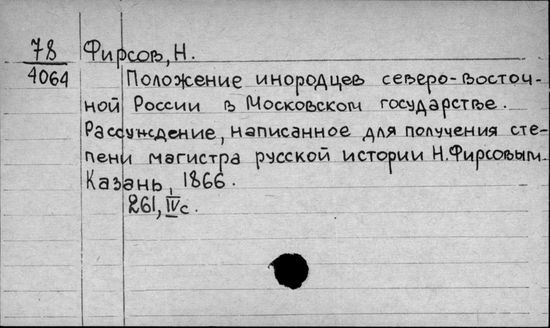 78 Фирсов, Н.
4064 Положение инородцев северо-восточ-
ной России в Московском государстве.
Рассуждение, написанное для получения сте-
пени магистра русской истории Н.Фирсовым.
Казань, 1866.
261, IV с.